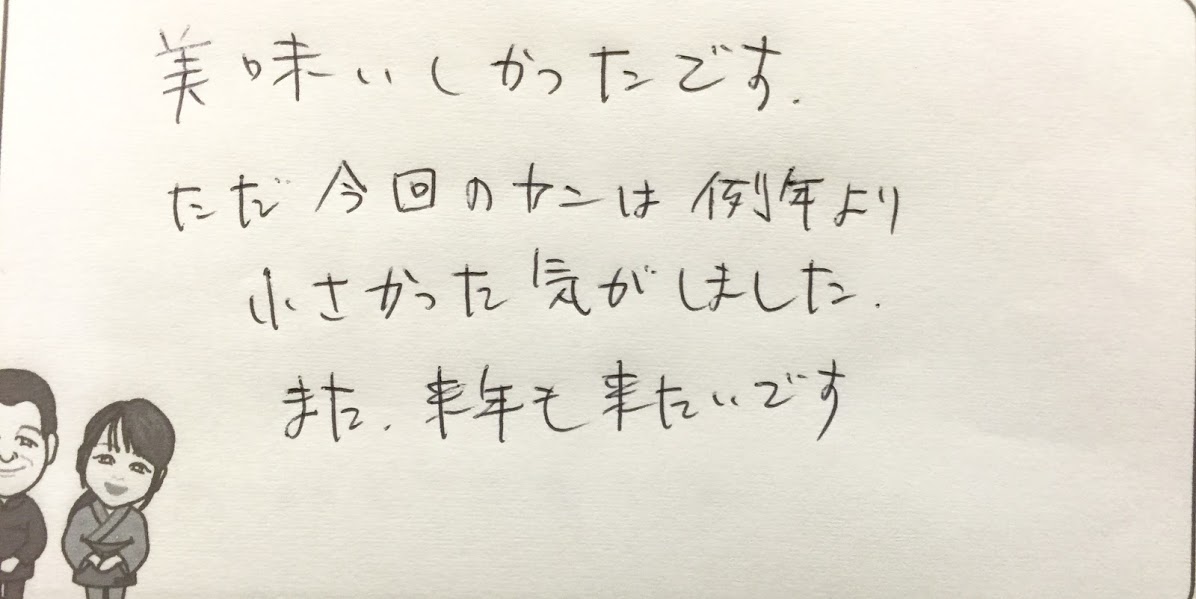 美味いしかったです.
ただ今回のカンは例年より
小さかった気がしました.
また.来年も来たいです